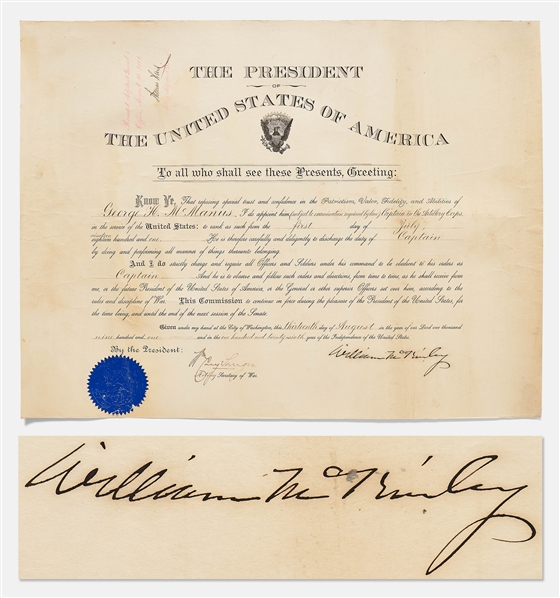 THE PRESIDENT
OF
THE UNITED STATES OF AMERICA
To all who shall see these Presents, Greeting:
Know Ye, That reposing special trust and confidence in the Patriotism, Valor, Fidelity, and Abilities of
George H. McManus, I do appoint him (subject to examination required by law) Captain in the Artillery Corps
in the service of the United States: to rank as such from the first day of July
eighteen hundred and one. He is therefore carefully and diligently to discharge the duty of Captain
by doing and performing all manner of things thereunto belonging.
And I do strictly charge and require all Officers and Soldiers under his command to be obedient to his orders as
Captain And he is to observe and follow such orders and directions, from time to time, as he shall receive from
me, or the future President of the United States of America, or the General or other superior Officers set over him, according to the
rules and discipline of War. This Commission to continue in force during the pleasure of the President of the United States, for
the time being, and until the end of the next session of the Senate.
Given under my hand at the City of Washington, this thirteenth day of August in the year of our Lord one thousand
nine hundred and one and in the one hundred and twenty sixth year of the Independence of the United States.
By the President:
William McKinley
Secretary of War.
William McKinley